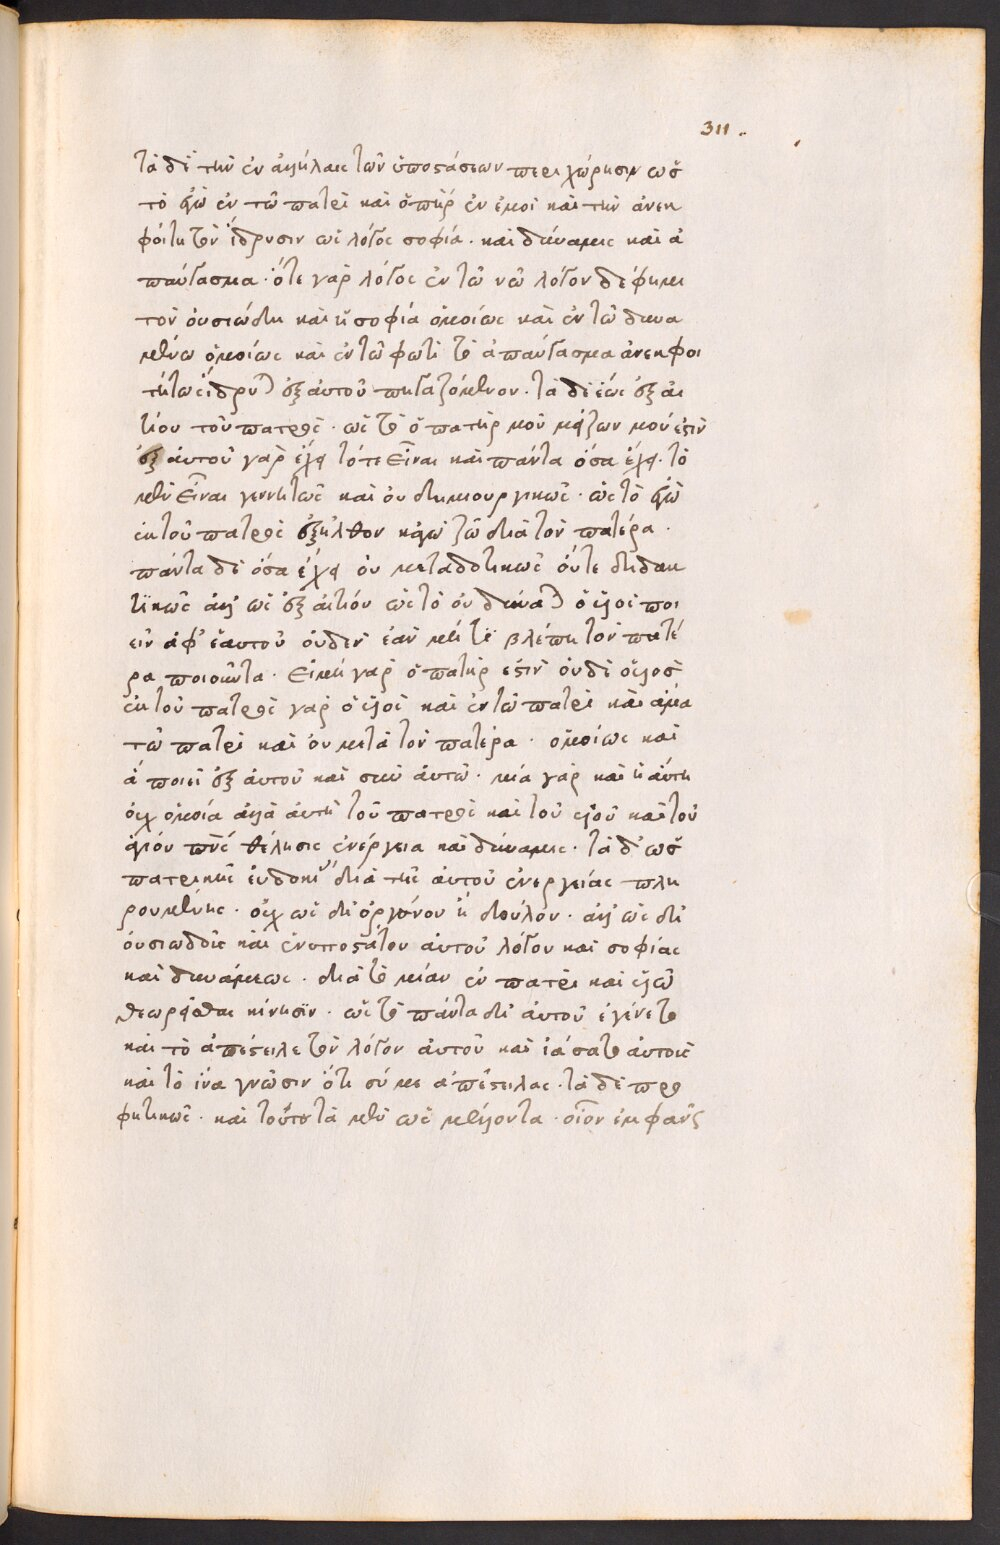 311.
τὰ δὲ τὴν ἐν ἀλλήλαις τῶν ὑποστάσεων περιχώρησιν ὡς
τὸ ἐγὼ ἐν τῶ πατρὶ καὶ ὁ πηρ ἐν ἐμοὶ καὶ τὴν ἀνεκ
φοίτητον ἵδρυσιν ὡς λόγος σοφία. καὶ δύναμις καὶ ἀ
παύγασμα. ὅτε γὰρ λόγος ἐν τῶ νῶ λόγον δέ φημι
τὸν οὐσιώδη καὶ ἡ σοφία ὁμοίως καὶ ἐν τῶ δυνα
μένω ὁμοίως καὶ ἐν τῶ φωτὶ τὸ ἀπαύγασμα ἀνεκφοι
τήτως ἵδρυται ἐξ αὐτοῦ πηγαζόμενον. τὰ δὲ ὡς ἐξ αι
τίου τοῦ πατρὸς. ὡς τὸ ὁ πατήρ μου μείζων μού ἐστιν
ἐξ αὐτοῦ γὰρ ἔχει τό τε εἶναι καὶ πάντα ὅσα ἔχει. τὸ
μὲν εἶναι γεννητῶς καὶ οὐ δημιουργικῶς. ὡς τὸ ἐγὼ
ἐκ τοῦ πατρὸς ἐξῆλθον κἀγὼ ζῶ διὰ τὸν πατέρα.
πάντα δὲ ὅσα ἔχει οὐ μεταδοτικῶς οὔτε διδακ
τϊκῶς ἀλλ' ὡς ἐξ αἰτίου ὡς τὸ οὐ δύναται ὁ υἱὸς ποι
εῖν ἀφ' ἑαυτοῦ οὐδὲν ἐὰν μή τϊ βλέπη τὸν πατέ
ρα ποιοῦντα. εἰ μὴ γὰρ ὁ πατήρ ἐστιν οὐδὲ ὁ υἱὸς
ἐκ τοῦ πατρὸς γὰρ ὁ υἱὸς καὶ ἐν τῶ πατρὶ καὶ ἅμα
τῶ πατρὶ καὶ οὐ μετὰ τὸν πατέρα. ὁμοίως καὶ
ἃ ποιεῖ ἐξ αὐτοῦ καὶ σὺν αὐτῶ. μία γὰρ καὶ ἡ αὐτὴ
οὐχ ὁμοία ἀλλὰ αὐτὴ τοῦ πατρὸς καὶ τοῦ υἱοῦ καὶ τοῦ
ἁγίου πνς θέλησις ἐνέργεια καὶ δύναμις. τὰ δ' ὡς
πατρικῆς εὐδοκί διὰ τῆς αὐτοῦ ἐνεργείας πλη
ρουμένης. οὐχ ὡς δι' ὀργάνου ἢ δούλου. ἀλλ' ὡς δι'
οὐσιωδοῦς καὶ ἐνυποστάτου αὐτοῦ λόγου καὶ σοφίας
καὶ δυνάμεως. διὰ τὸ μίαν ἐν πατρὶ καὶ υἱῶ
θεωρεῖσθαι κίνησϊν. ὡς τὸ πάντα δι' αὐτοῦ ἐγένετο
καὶ τὸ ἀπέστειλε τὸν λόγον αὐτοῦ καὶ ἰάσατο αὐτοὺς
καὶ τὸ ἵνα γνῶσιν ὅτι σύ με ἀπέστειλας. τὰ δὲ προ
φητικῶς. καὶ τούτων τὰ μὲν ὡς μέλλοντα. οἷον ἐμφανῶς